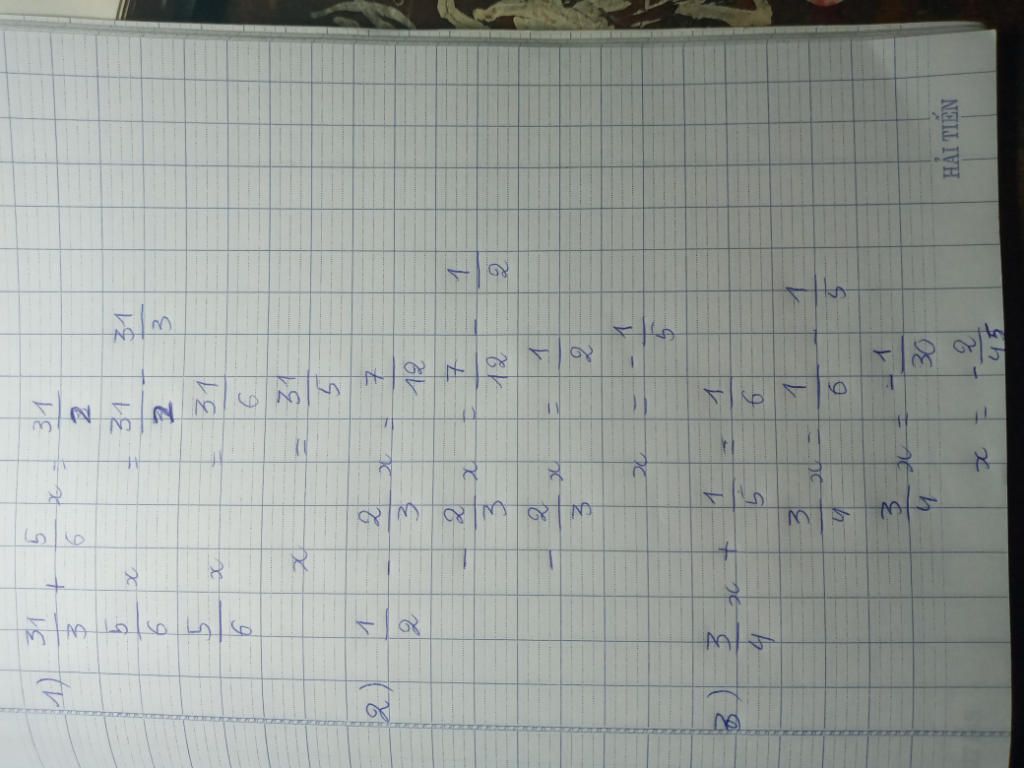 1) 31/3 + 5/6 x = 31/2
5/6 x = 31/2 - 31/3
5/6 x = 31/6
x = 31/5
2) 1/2 - 2/3 x = 7/12
- 2/3 x = 7/12 - 1/2
- 2/3 x = 1/2
x = - 1/5
3) 3/4 x + 1/5 = 1/6
3/4 x = 1/6 - 1/5
3/4 x = - 1/30
x = - 2/45
HẢI TIẾN